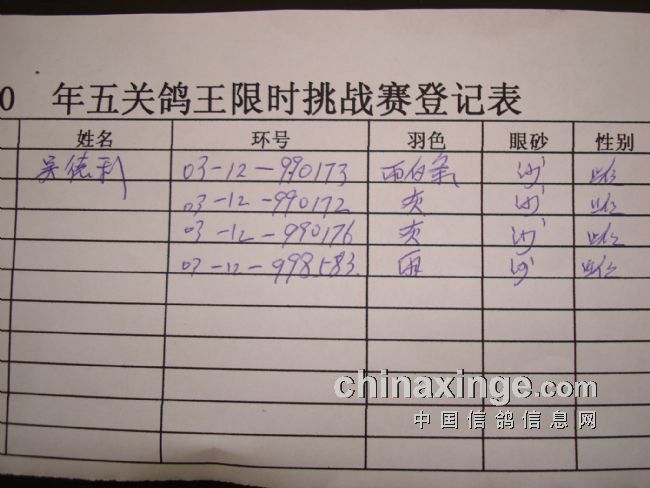 0 年五关鸽王限时挑战赛登记表
姓名 环号 羽色 眼砂 性别
吴德利 03-12-990173 雨白条 沙 雌
03-12-990172 灰 沙 雌
03-12-990176 灰 沙 雌
03-12-998583 雨 沙 雌
chinaxinge.com
中国信鸽信息网